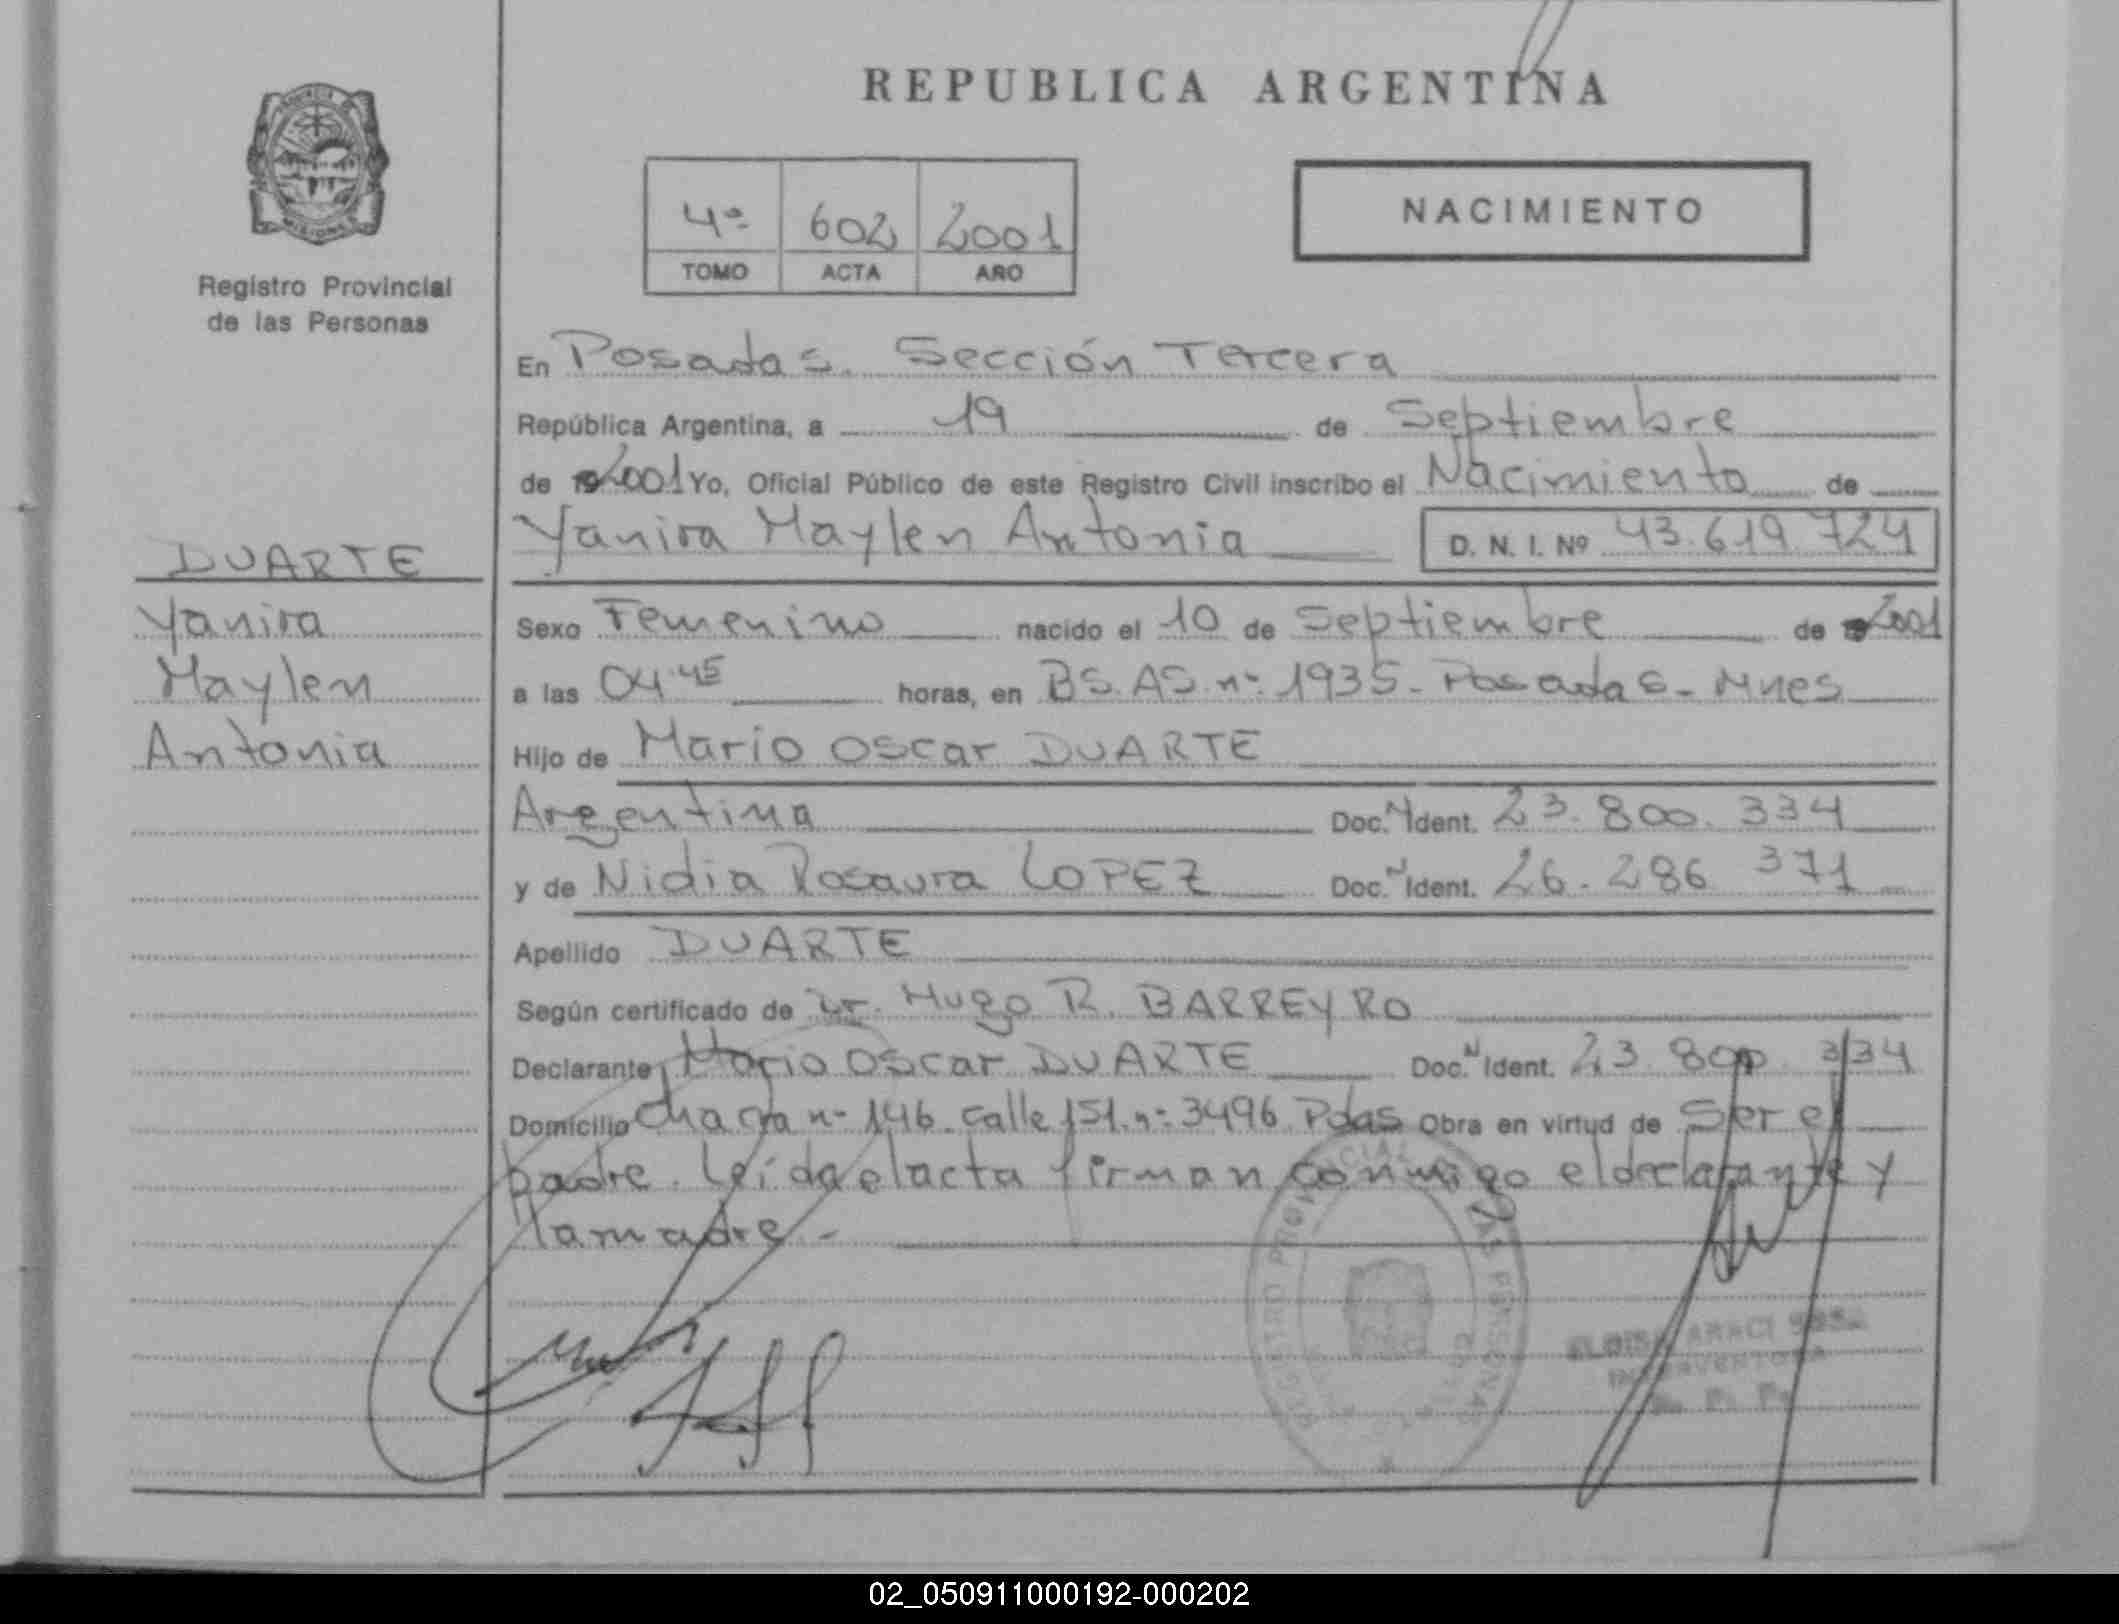 REPUBLICA ARGENTINA
MISIONES
Registro Provincial
de las Personas
4º 602 2001
TOMO ACTA AÑO
NACIMIENTO
En Posadas. Sección Tercera
República Argentina, a 19 de Septiembre
de 2001 Yo, Oficial Público de este Registro Civil inscribo el Nacimiento de
Yanira Maylen Antonia D. N. I. Nº 43.619.724
DUARTE
Yanira
Maylen
Antonia
Sexo Femenino nacido el 10 de Septiembre de 2001
a las 04.45 horas, en BS.AS. nº 1935. Posadas - Mnes
Hijo de Mario Oscar DUARTE
Argentina Doc. N Ident. 23.800.334
y de Nidia Rosaura LOPEZ Doc. N Ident. 26.286 371
Apellido DUARTE
Según certificado de Dr. Hugo R. BARREYRO
Declarante Mario Oscar DUARTE Doc. N Ident. 23.800.334
Domicilio Chacra nº 146. calle 151. nº 3496. Pdas Obra en virtud de Ser el
padre. Leída el acta firman conmigo el declarante y
la madre.-
REGISTRO PROVINCIAL DE LAS PERSONAS
ELOISA ARACI SOSA
INTERVENTORA
R. P. P.
02_050911000192-000202